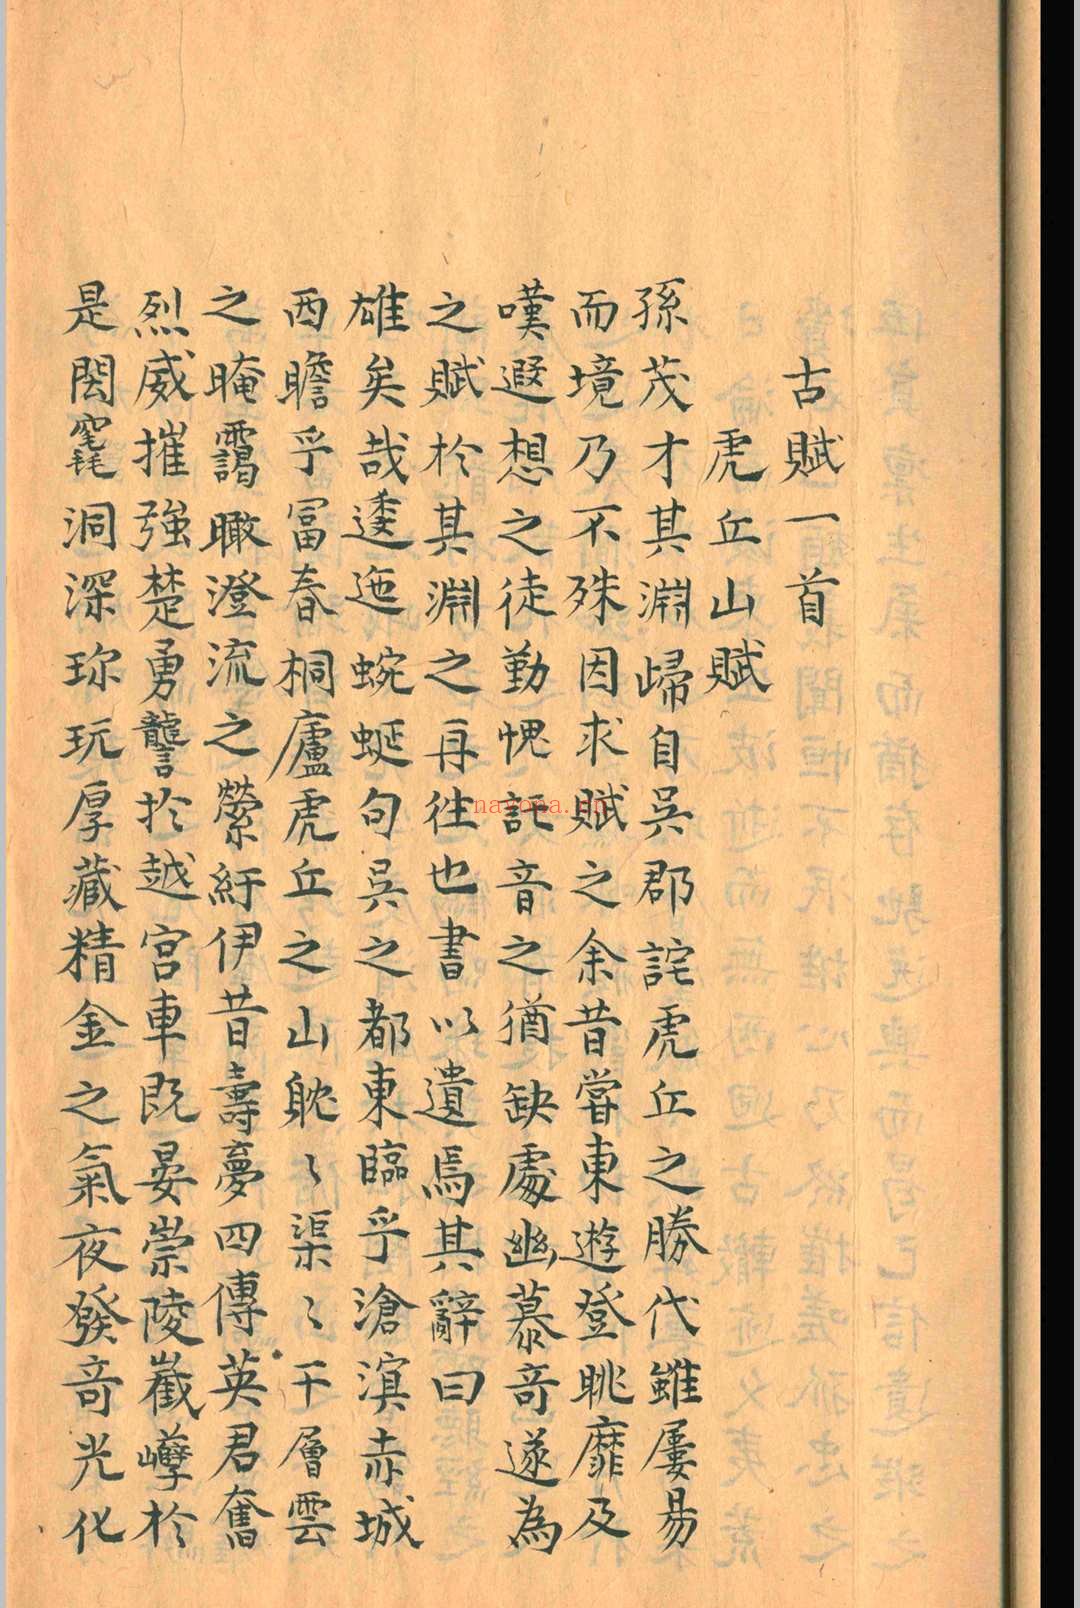 古賦一首
虎丘山賦
孫茂才其淵歸自吳郡詫虎丘之勝代雖屢易
而境乃不殊因求賦之余昔嘗東遊登眺靡及
嘆遐想之徒勤愧託音之猶缺處幽慕奇遂為
之賦於其淵之再往也書以遺焉其辭曰
雄矣哉逶迤蜿蜒句吳之都東臨乎滄溟赤城
西瞻乎冨春桐廬虎丘之山眈〻渠〻干層雲
之晻靄瞰澄流之縈紆伊昔壽夢四傳英君奮
烈威摧強楚勇讋於越宮車既晏崇陵嶻嶭於
是閎窀洞深珎玩厚藏精金之氣夜發奇光化
nayona.cn